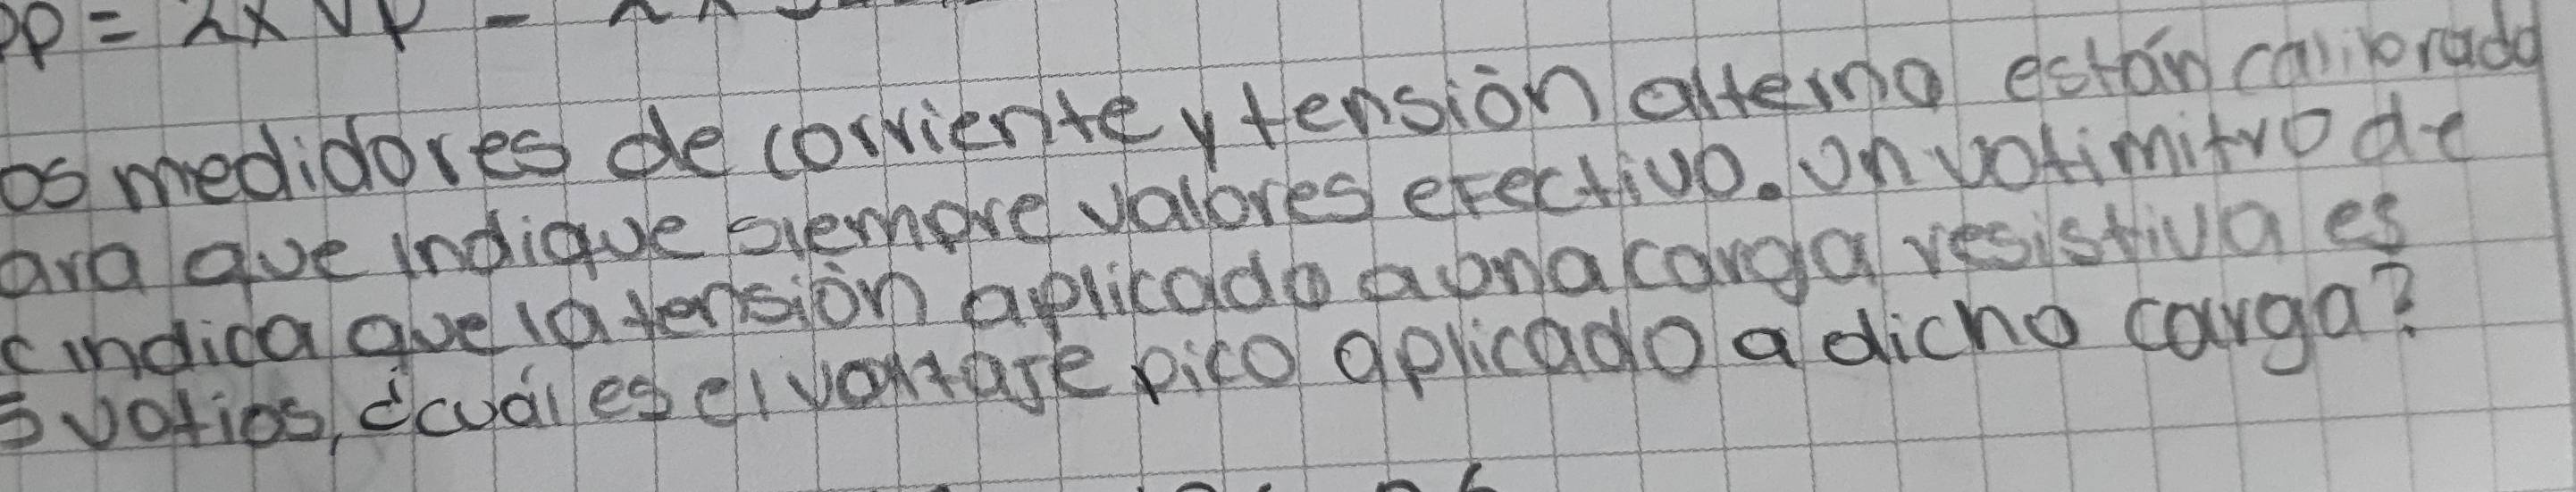 Pp = 2x Vp -
os medidores de corriente y tensión alterna están calibrado
ara que indique siempre valores efectivo. Un votimitro de
c indica que la tensión aplicado a una carga resistiva es
5 votios, ¿cuál es el voltaje pico aplicado a dicho carga?